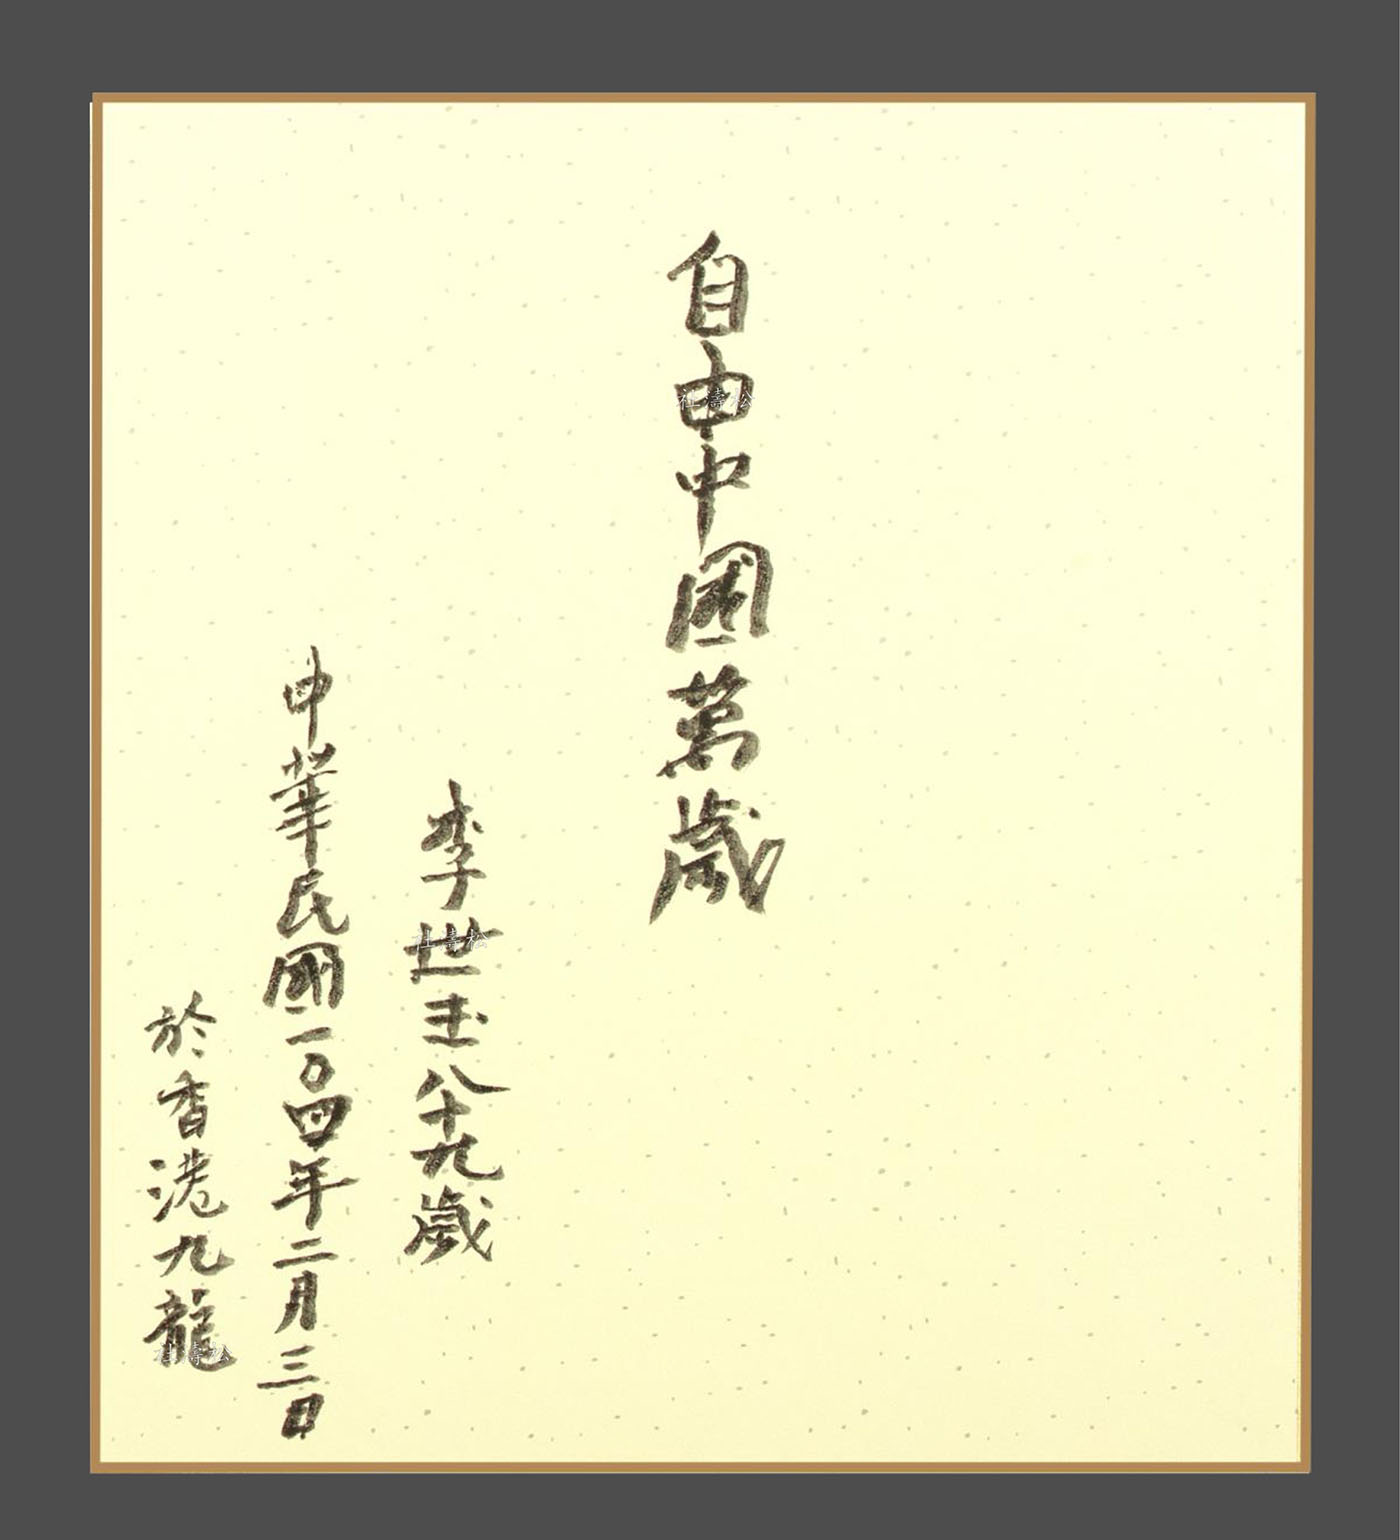 自由中國萬歲
李世玉八十九歲
中華民國一〇四年二月三日
於香港九龍